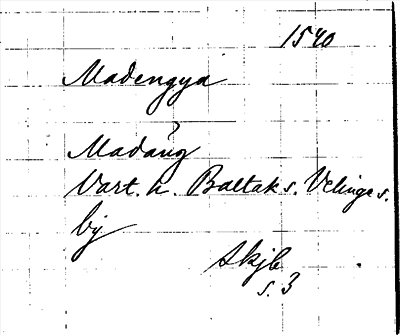 1540
Madengya
Madäng
Vart. h. Baltak s. Velinga s.
by
Skjb
s. 3